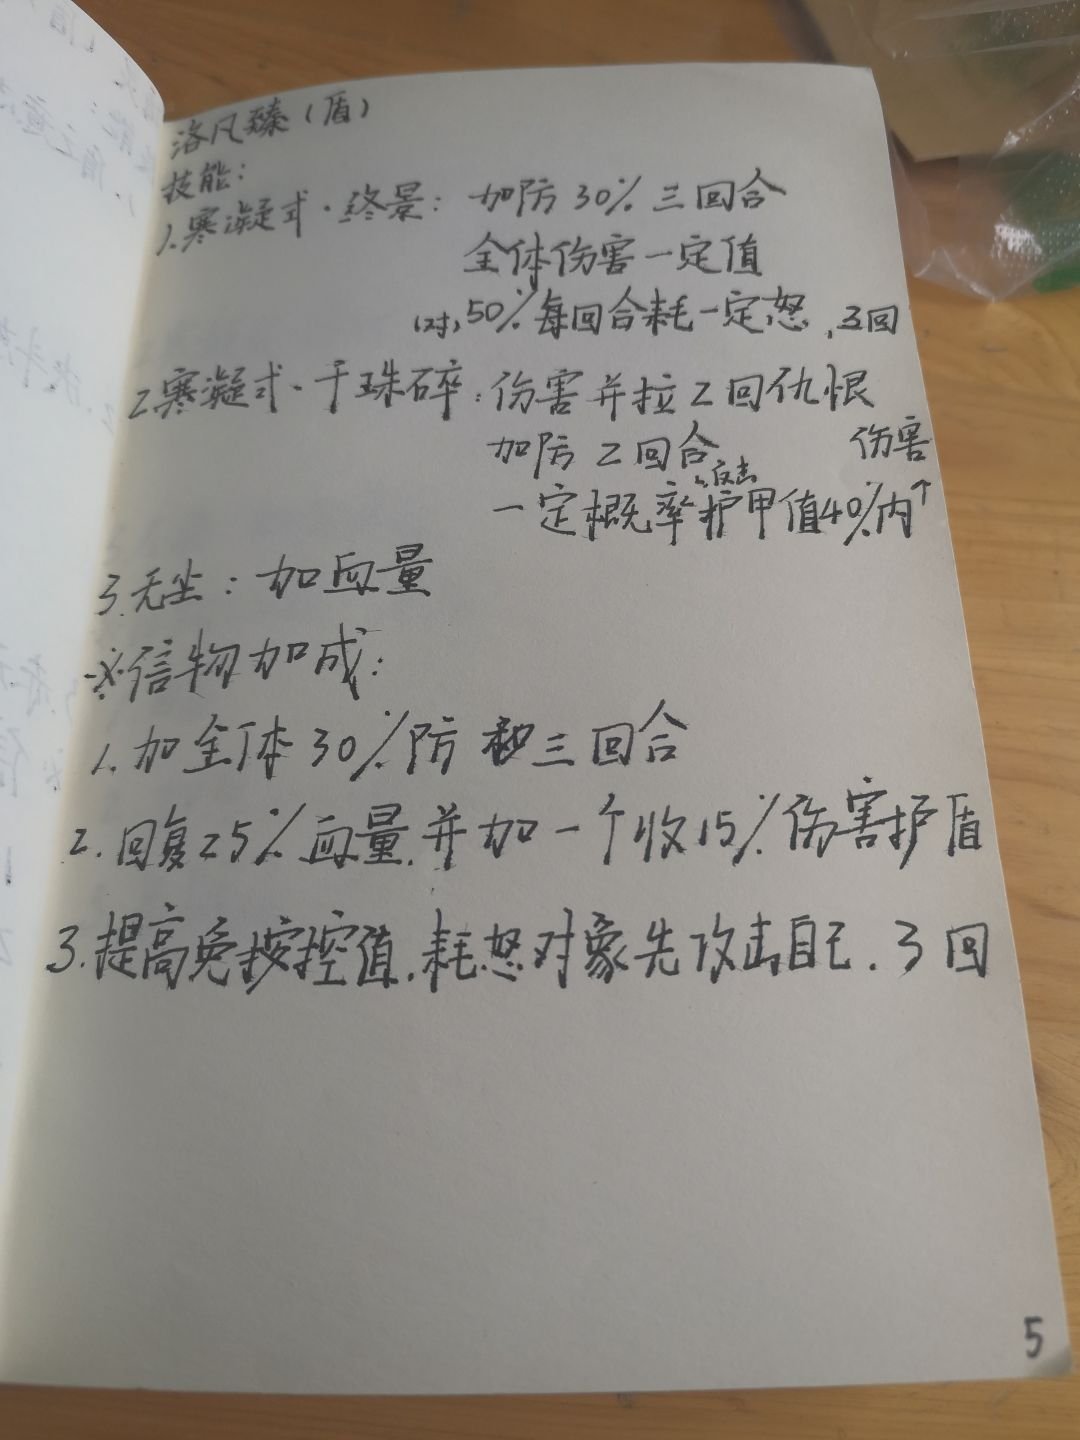 洛凡臻（盾）
技能：
1.寒凝式·终景：加防30% 三回合
全体伤害一定值
（对）50%每回合耗一定怒，3回
2.寒凝式·千珠碎：伤害并拉2回仇恨
加防2回合
一定概率反击护甲值40%内伤害↑
3.无尘：加血量
※信物加成：
1.加全体30%防 三回合
2.回复25%血量，并加一个收15%伤害护盾
3.提高免控值，耗怒对象先攻击自己．3回
5